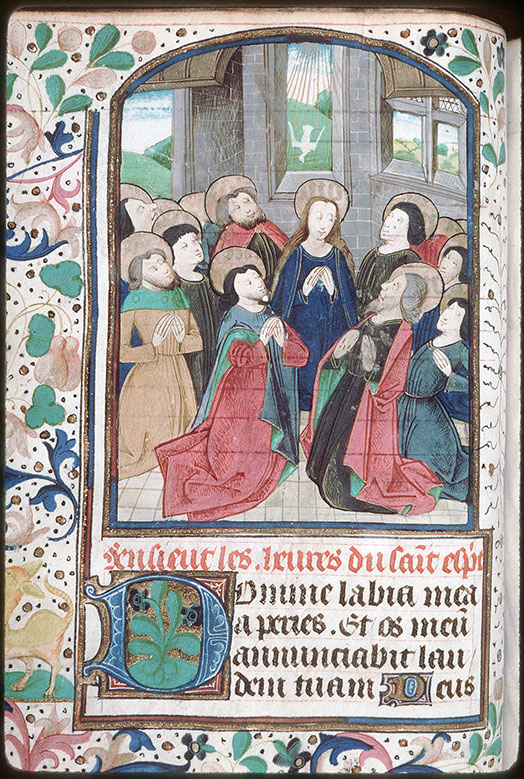 Ensieut les heures du saīt esp̄t
Domine labia mea
aperies. Et os meū
annunciabit lau
dem tuam Deus